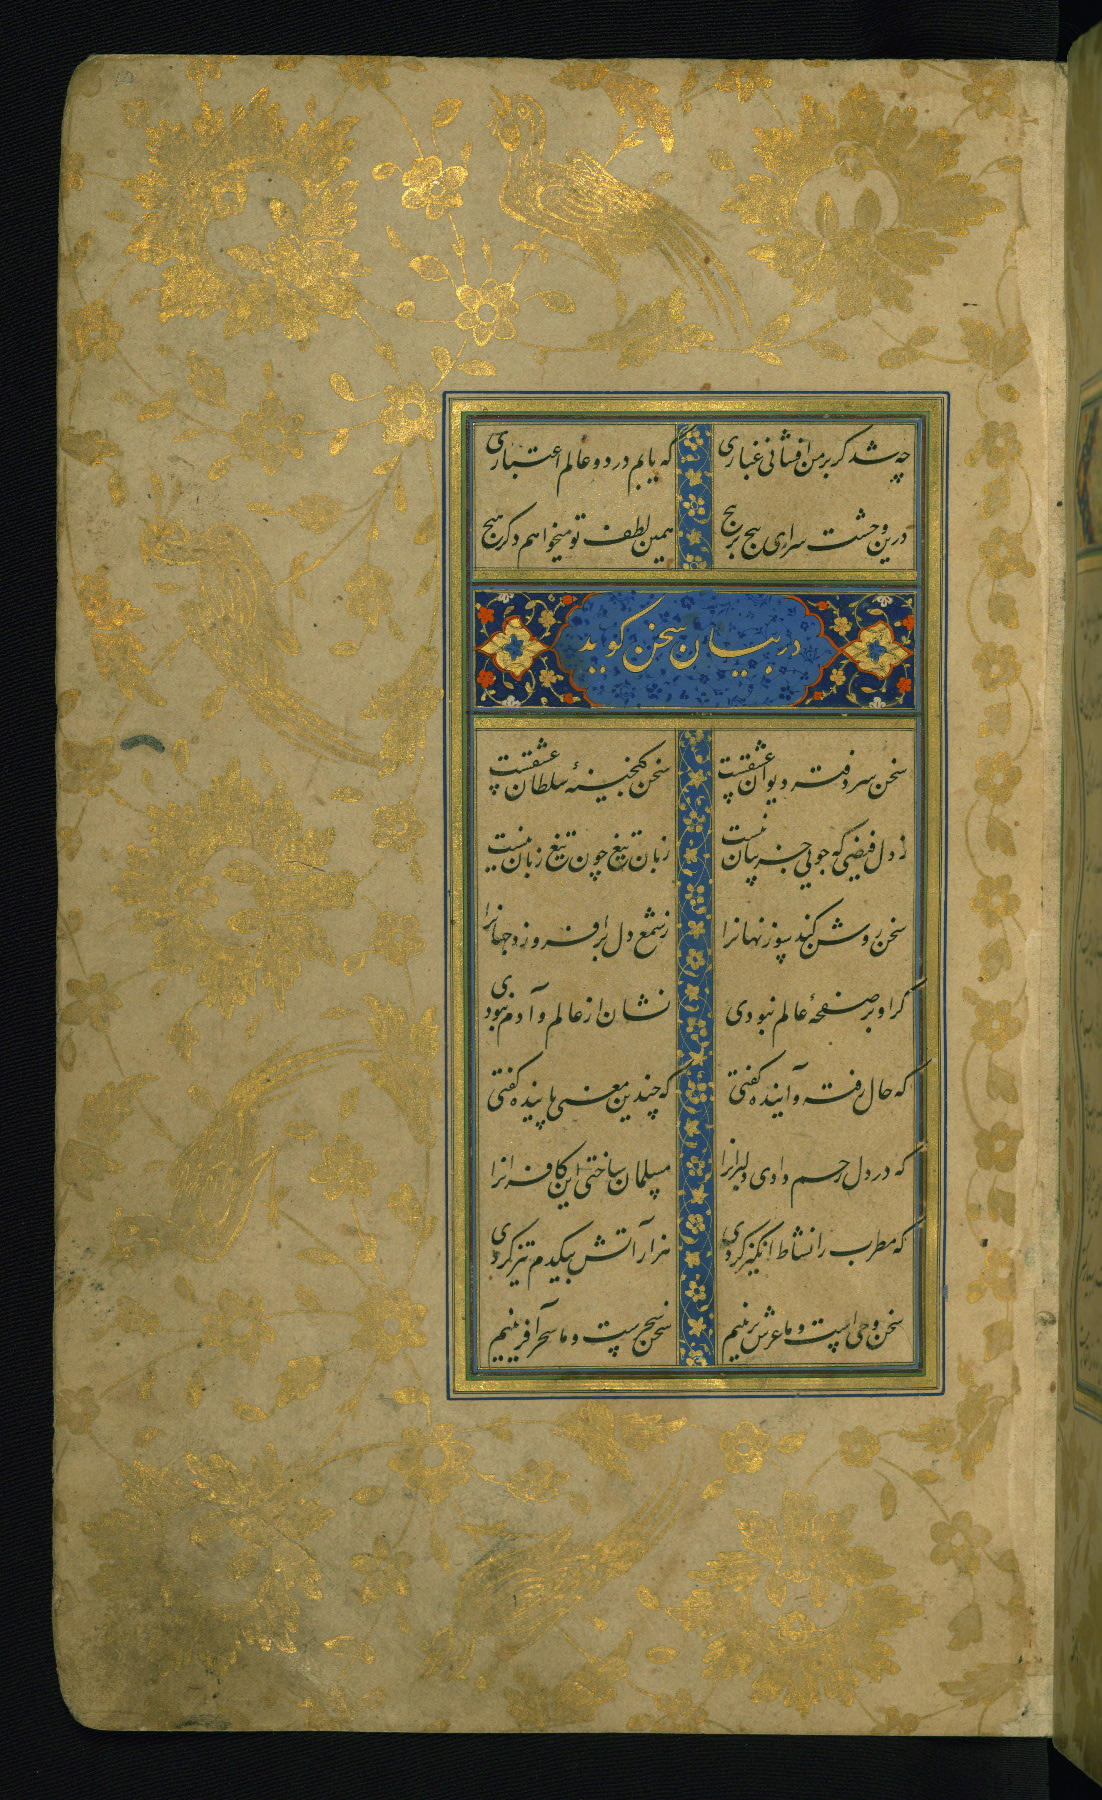 چه شد کر بر من افشانی غباری که یابم در دو عالم اعتباری
درین وحشت سرای هیچ بر هیچ همین لطف تو میخواهم دکر هیچ
در بیان سخن کوید
سخن سر دفتر دیوان عشقست سخن کنجینهٔ سلطان عشقست
ز دل فیضی که جویی جز بیان نیست زبان تیغ چون تیغ زبان نیست
سخن روشن کند سوز نهانرا ز شمع دل برافروزد جهانرا
کر او بر صفحهٔ عالم نبودی نشان از عالم و آدم نبودی
که حال رفته و آینده کفتی که چندین معنی پاینده کفتی
که در دل رحم دادی دلبرانرا مسلمان ساختی این کافرانرا
که مطرب را نشاط انکیز کردی هزار آتش بیکدم تیز کردی
سخن وحی است و ما عرش برینیم سخن سحرست و ما سحر آفرینیم